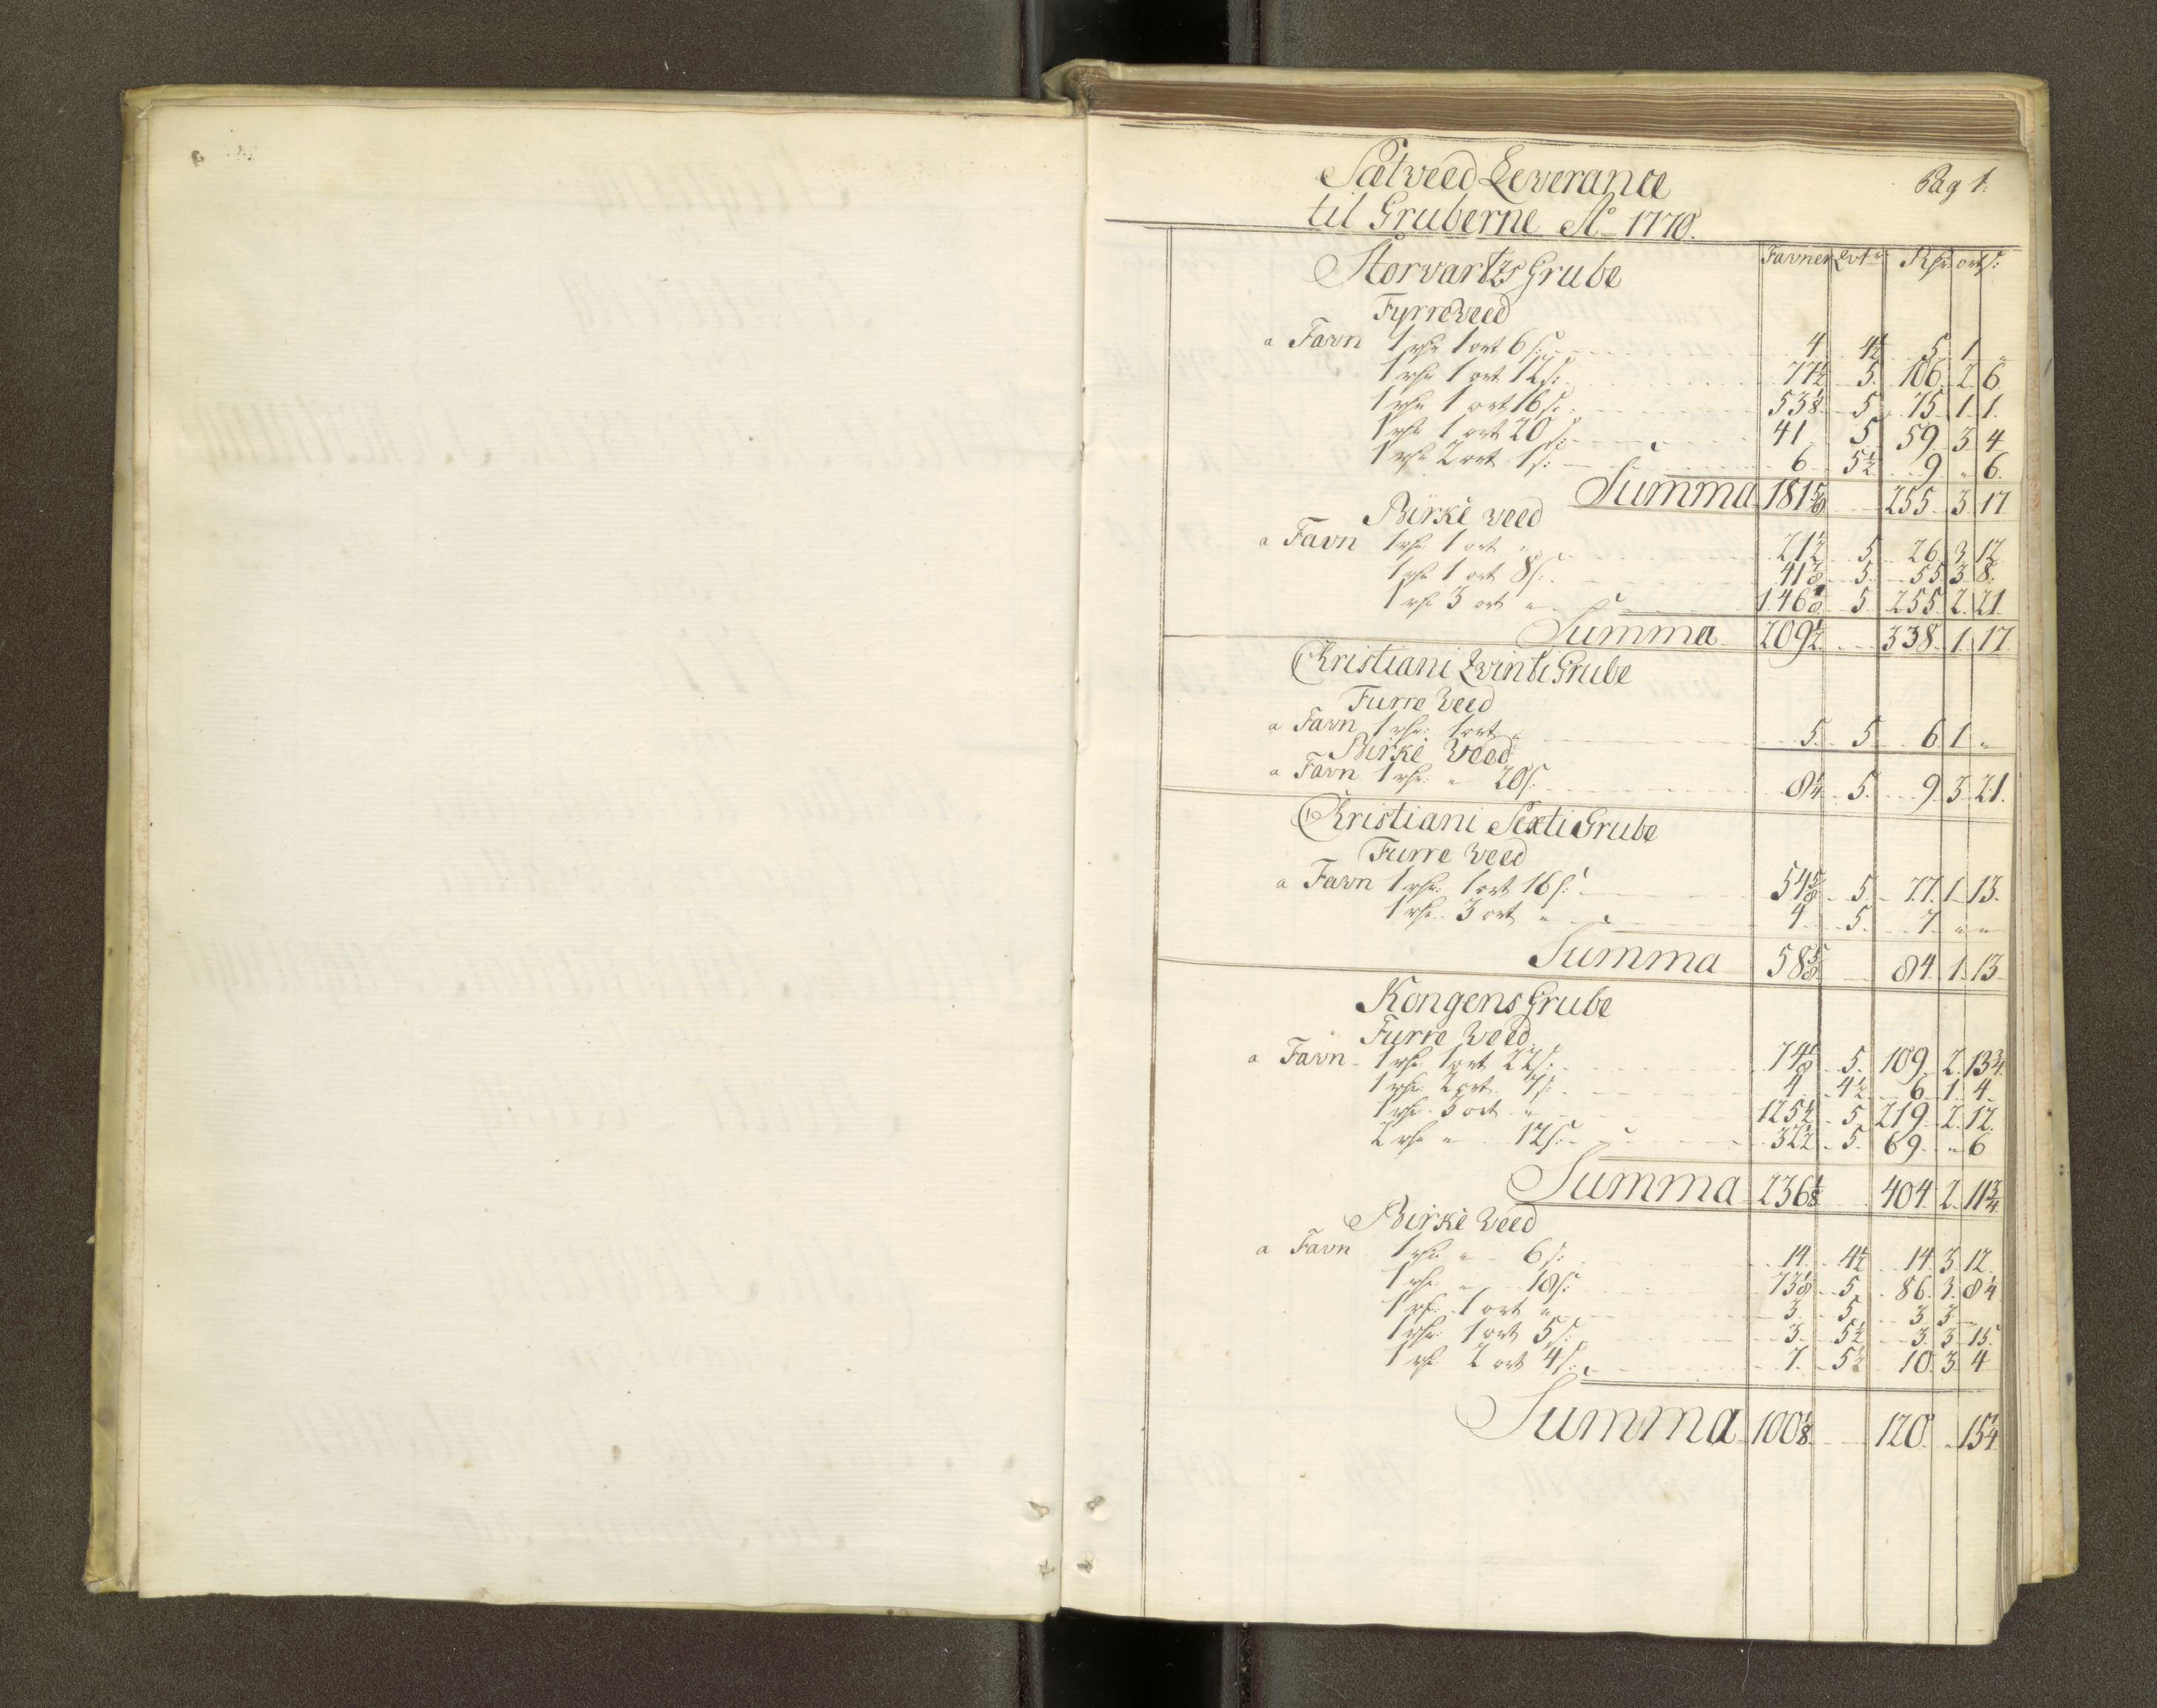 Pag 1.
Sætveed Leverance
til Gruberne Ao 1770.
Favner Qvt. Rhr. ort s:
Storvartzs Grube
Fyrreveed
a Favn 1 rhr 1 ort 6 s: 4 4½ 5 1 "
1 rhr 1 ort 12 s: 77½ 5 106 2 6
1 rhr 1 ort 16 s: 53 1/8 5 75 1 1
1 rhr 1 ort 20 s: 41 5 59 3 4
1 rhr 2 ort 1 s: 6 5½ 9 " 6
Summa 181 5/8 255 3 17
Birke veed
a Favn 1 rhr 1 ort " 21½ 5 26 3 12
1 rhr 1 ort 8 s: 41 7/8 5 55 3 8
1 rhr 3 ort " 146 1/8 5 255 2 21
Summa 209½ 338 1 17
Christiani Qvinti Grube
Furre Veed
a Favn 1 rhr: 1 ort " 5 5 6 1 "
Birke Veed
a Favn 1 rhr. " 20 s. 8¼ 5 9 3 21
Christiani Sexti Grube
Furre Veed
a Favn 1 rhr. 1 ort 16 s: 54 5/8 5 77 1 13
1 rhr. 3 ort " 4 5 7 " "
Summa 58 5/8 84 1 13
Kongens Grube
Furre Veed
a Favn 1 rhr 1 ort 22 s: 74 1/8 5 109 2 13¾
1 rhr. 2 ort 7 s: 4 4½ 6 1 4
1 rhr. 3 ort " 125½ 5 219 2 12
2 rhr " 12 s: 32½ 5 69 " 6
Summa 236 1/8 404 2 11¾
Birke Veed
a Favn 1 rhr " 6 s: 14 4½ 14 3 12
1 rhr " 18 s: 73 1/8 5 86 3 8¼
1 rhr. 1 ort " 3 5 3 3
1 rhr. 1 ort 5 s: 3 5½ 3 3 15
1 rhr 2 ort 4 s: 7 5½ 10 3 4
Summa 100 1/8 120 " 15¼